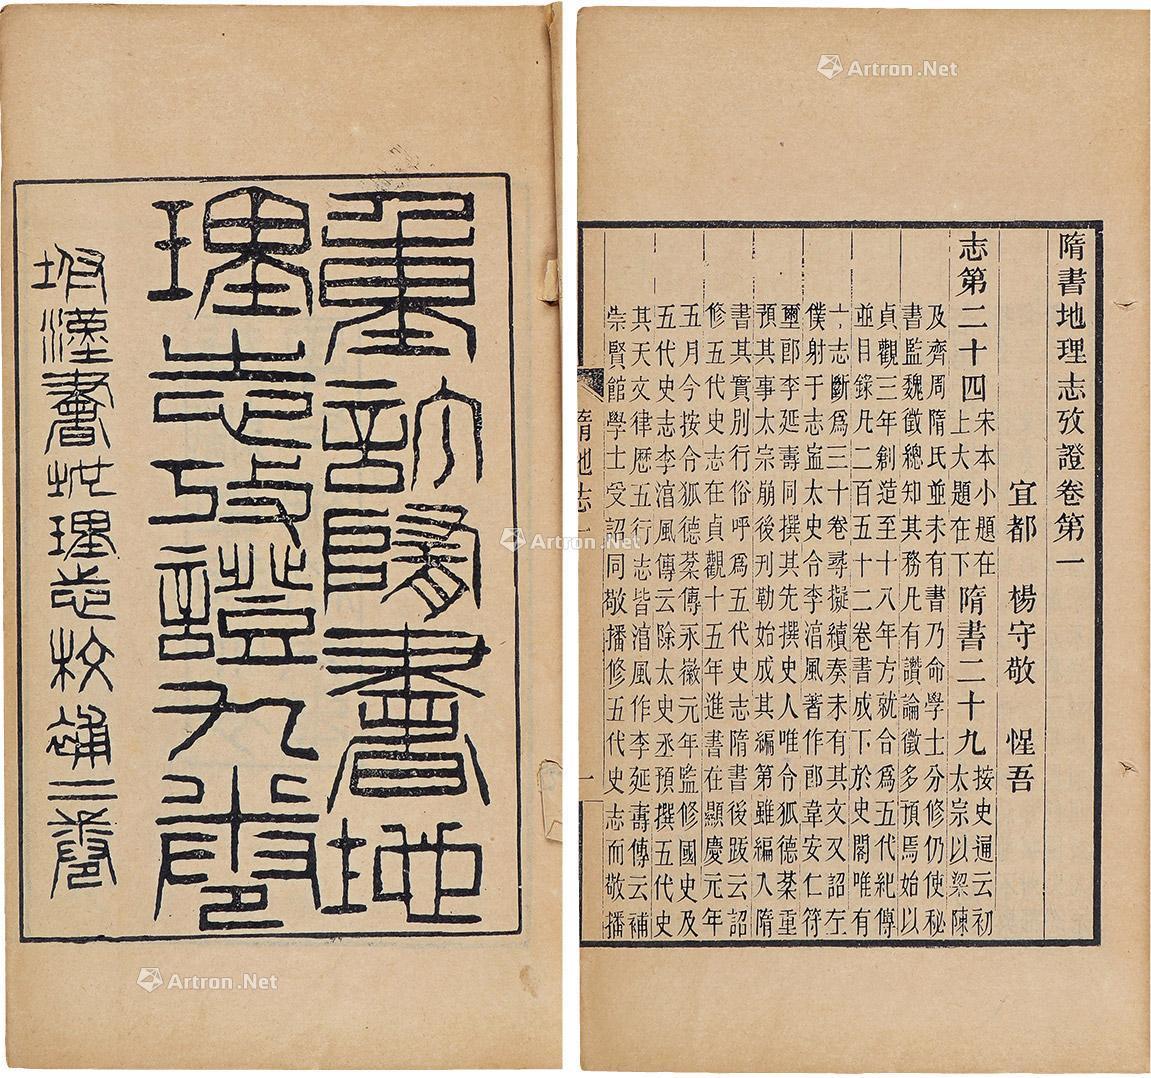 重訂隋書地
理志攷證九卷
坿漢書地理志校補二卷
隋書地理志攷證卷第一
宜都 楊守敬 惺吾
志第二十四 宋本小題在上大題在下 隋書二十九 按史通云初太宗以梁陳
及齊周隋氏並未有書乃命學士分修仍使秘
書監魏徵總知其務凡有讚論徵多預焉始以
貞觀三年創造至十八年方就合爲五代紀傳
並目錄凡二百五十二卷書成下於史閣唯有
十志斷爲三十卷尋擬續奏未有其文又詔左
僕射于志寍太史令李湻風著作郎韋安仁符
璽郎李延壽同撰其先撰史人唯令狐德棻重
預其事太宗崩後刊勒始成其編第雖編入隋
書其實別行俗呼爲五代史志隋書後跋云詔
修五代史志在貞觀十五年進書在顯慶元年
五月今按令狐德棻傳永徽元年監修國史及
五代史志李湻風傳云除太史丞預撰五代史
其天文律歷五行志皆湻風作李延壽傳云補
崇賢館學士受詔同敬播修五代史志而敬播
隋地志一
一
Artron.Net
Artron.Net
Artron.Net